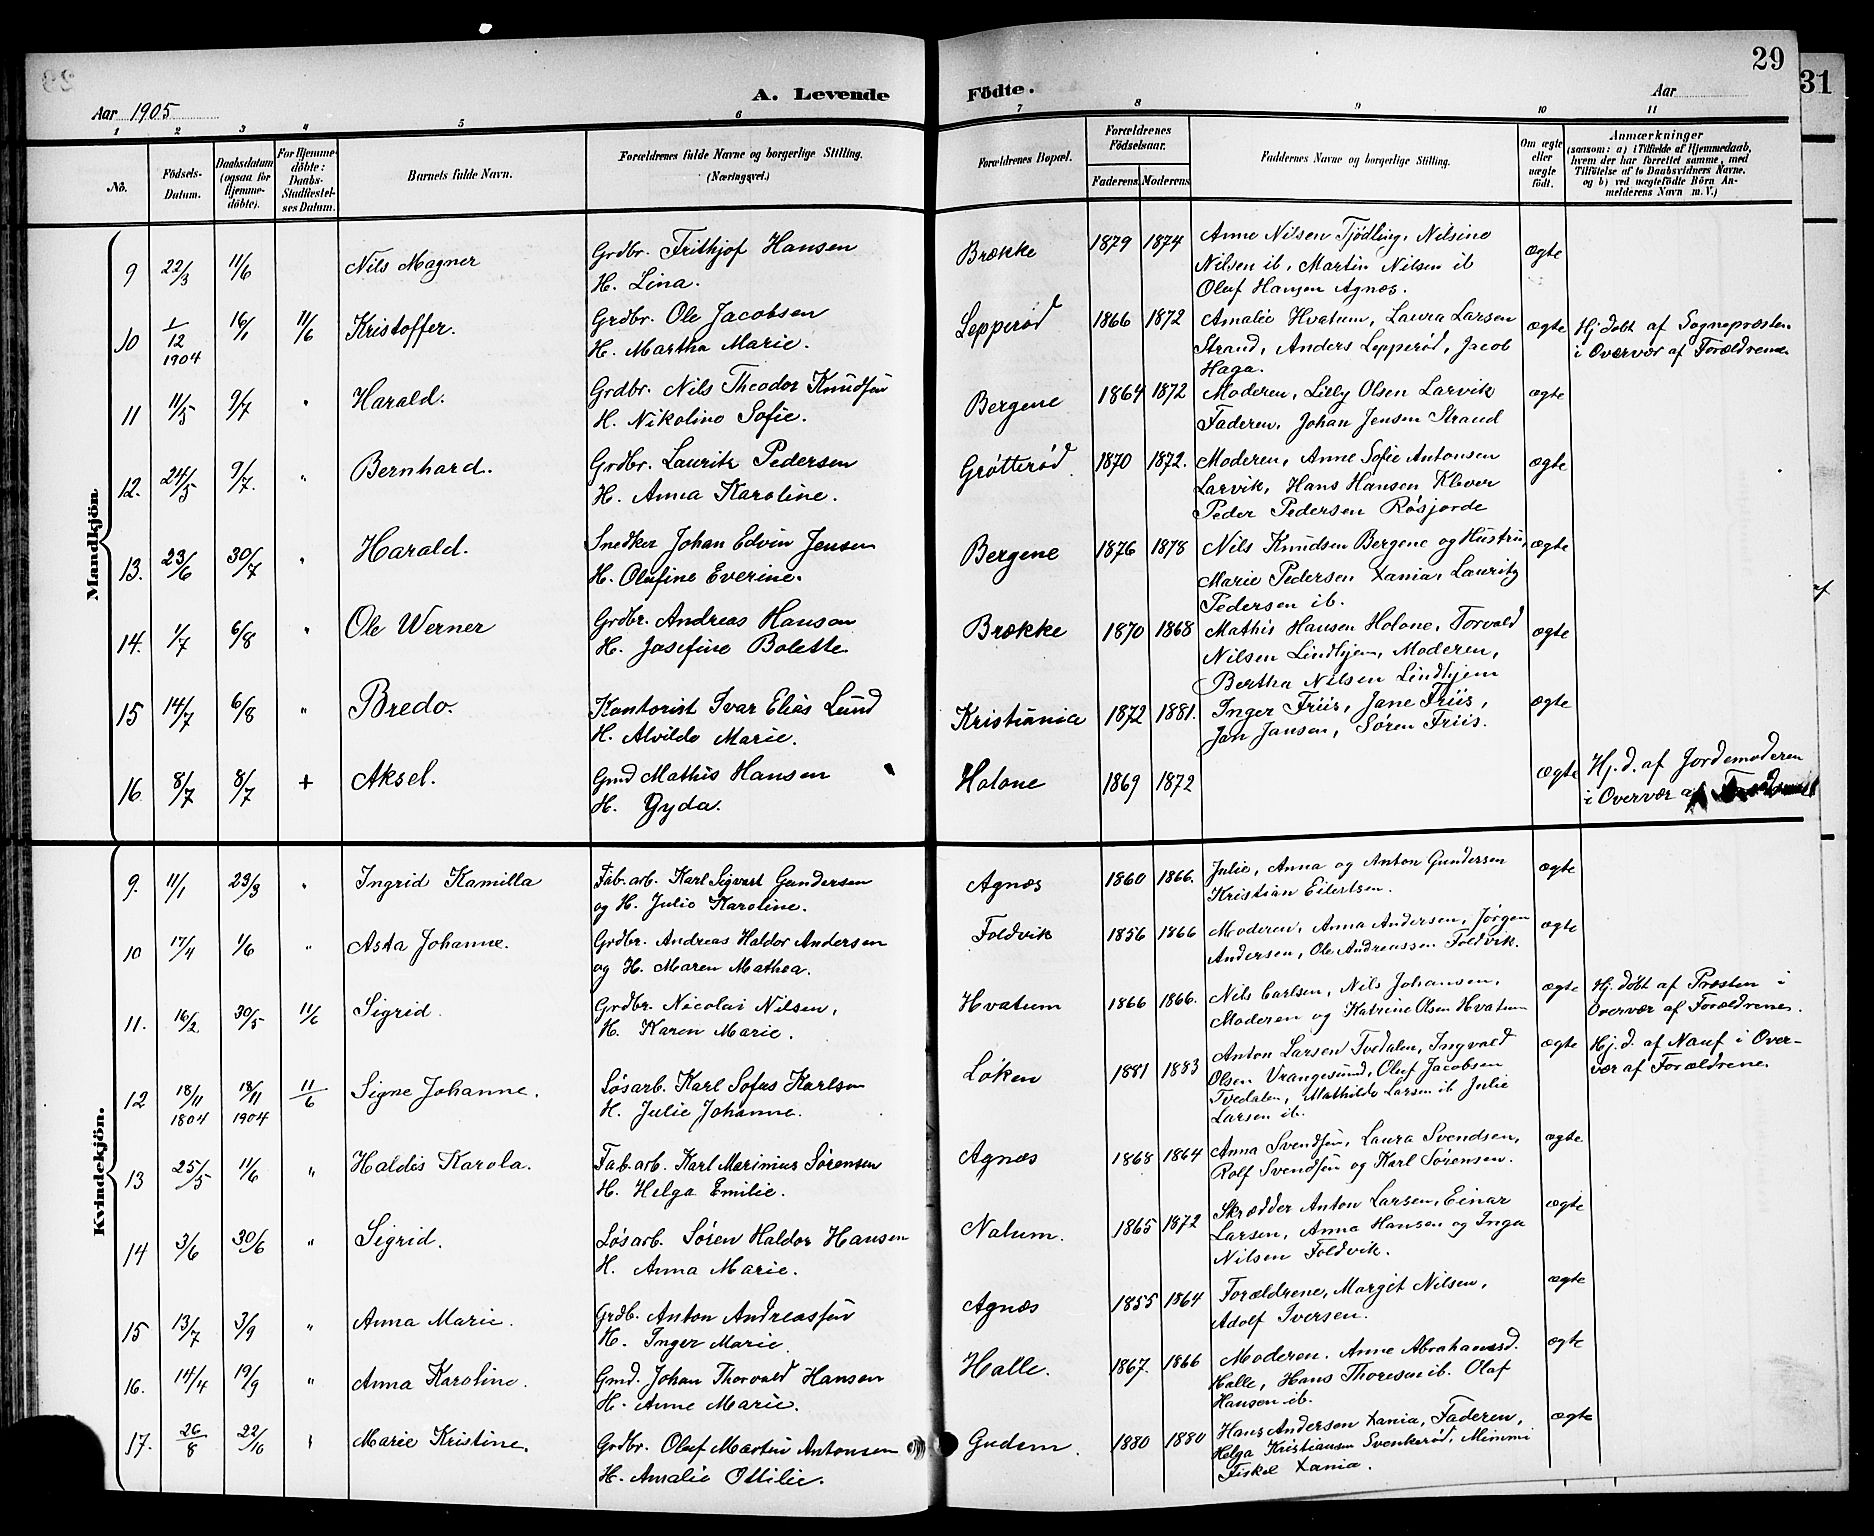 29
31
Aar 1905
A. Levende Födte.
Aar
1 2 3 4 5 6 7 8 9 10 11
No.
Födsels-Datum.
Daabsdatum (ogsaa for Hjemmedöbte).
For Hjemmedöbte: Daabs-Stadfæstelses Datum.
Barnets fulde Navn.
Forældrenes fulde Navne og borgerlige Stilling. (Næringsvei.)
Forældrenes Bopæl.
Forældrenes Födselsaar.
Faderens. Moderens.
Faddernes Navne og borgerlige Stilling.
Om ægte eller uægte født.
Anmærkninger
(saasom: a) i Tilfælde af Hjemmedaab, hvem der har forrettet samme, med Tilföielse af to Daabsvidners Navne, og b) ved uægtefödte Börn Anmelderens Navn m. V.)
Mandkjön
9 22/3 11/6 Nils Magner Grdbr. Frithjof Hansen Brække 1879 1874 Anne Nilsen Tjödling, Nilsine ægte
H. Lina. Nilsen ib, Martin Nilsen ib
Oluf Hansen Agnæs.
10 1/12 1904 16/1 11/6 Kristoffer. Grdbr. Ole Jacobsen Lepperød 1866 1872 Amalie Hvatum, Laura Larsen ægte Hj. døbt af Sognepræsten
H. Martha Marie. Strand, Anders Lepperød, Jacob i Overvær af Forældrene.
Haga.
11 11/5 9/7 " Harald. Grdbr. Nils Theodor Knudsen Bergene 1864 1872 Moderen, Lilly Olsen Larvik ægte
H. Nikoline Sofie. Faderen, Johan Jensen Strand
12. 24/5 9/7. " Bernhard. Grdbr. Lauritz Pedersen Grøtterød. 1870 1872. Moderen, Anne Sofie Antonsen ægte
H. Anna Karoline. Larvik, Hans Hansen Klever
Peder Pedersen Røsjorde
13. 23/6 30/7 " Harald. Snedker Johan Edvin Jensen Bergene 1876 1878 Nils Knudsen Bergene og Hustru, ægte
H. Olufine Everine. Marie Pedersen Xania, Lauritz
Pedersen ib.
14. 1/7 6/8 " Ole Werner Grdbr. Andreas Hansen Brække 1870 1868 Mathis Hansen Holone, Torvald ægte
H. Josefine Bolette Nilsen Lindhjem, Moderen,
Bertha Nilsen Lindhjem
15 14/7 6/8 " Bredo. Kontorist Ivar Elias Lund Kristiania 1872 1881. Inger Friis, Jane Friis, ægte
H. Alvilde Marie. Jan Jansen, Søren Friis.
16. 8/7 8/7 + Aksel. Gmd Mathis Hansen Holone 1869 1872 ægte Hj. d. af Jordemoderen
H. Gyda. i Overvær af Forældrene
Kvindekjön.
9. 11/1 23/3 " Ingrid Kamilla Fab. arb. Karl Sigvart Gundersen Agnæs 1860 1866. Julie, Anna og Anton Gundersen ægte
og H. Julie Karoline. Kristian Eilertsen.
10 17/4 1/6 " Asta Johanne. Grdbr. Andreas Haldor Andersen Foldvik 1856 1866 Moderen, Anna Andersen, Jørgen ægte
og H. Maren Mathea. Andersen, Ole Andreassen Foldvik.
11. 16/2 30/5 11/6 Sigrid. Grdbr. Nicolai Nilsen, Hvatum 1866 1866. Nils Carlsen, Nils Johansen, ægte Hj. døbt af Præsten i
H. Karen Marie. Moderen og Katrine Olsen Hvatum Overvær af Forældrene.
12 18/11 1804 18/11 1904 11/6 Signe Johanne. Løsarb. Karl Sofus Karlsen Løken 1881 1883 Anton Larsen Tvedalen, Ingvald ægte Hj. d. af Nauf i Over-
H. Julie Johanne. Olsen Vrangesund, Oluf Jacobsen vær af Forældrene.
Tvedalen, Mathilde Larsen ib Julie
Larsen ib.
13 25/5 11/6 " Haldis Karola. Fab. arb. Karl Marinius Sørensen Agnæs 1868 1864 Anna Svendsen, Laura Svendsen, ægte
H. Helga Emilie. Rolf Svendsen og Karl Sørensen.
14 3/6 30/6 " Sigrid. Løsarb. Søren Haldor Hansen Nalum. 1865 1872 Skrædder Anton Larsen, Einar ægte
H. Anna Marie. Larsen, Anna Hansen og Inga
Nilsen Foldvik.
15 13/7 3/9 " Anna Marie. Grdb. Anton Andreassen Agnæs 1855 1864 Forældrene, Margit Nilsen, ægte
H. Inger Marie. Adolf Iversen.
16. 14/4 19/9 " Anna Karoline. Gmd. Johan Thorvald Hansen Halle. 1867. 1866 Moderen. Anne Abrahamsd. ægte
H. Anne Marie. Halle, Hans Thoresen ib. Olaf
Hansen ib.
17. 26/8 22/10 " Marie Kristine. Grdbr. Oluf Martin Antonsen Gudem. 1880 1880 Hans Andersen Xania, Faderen, ægte
H. Amalie Ottilie. Helga Kristiansen Svenkerød, Mimmi
Fiskel Xania.